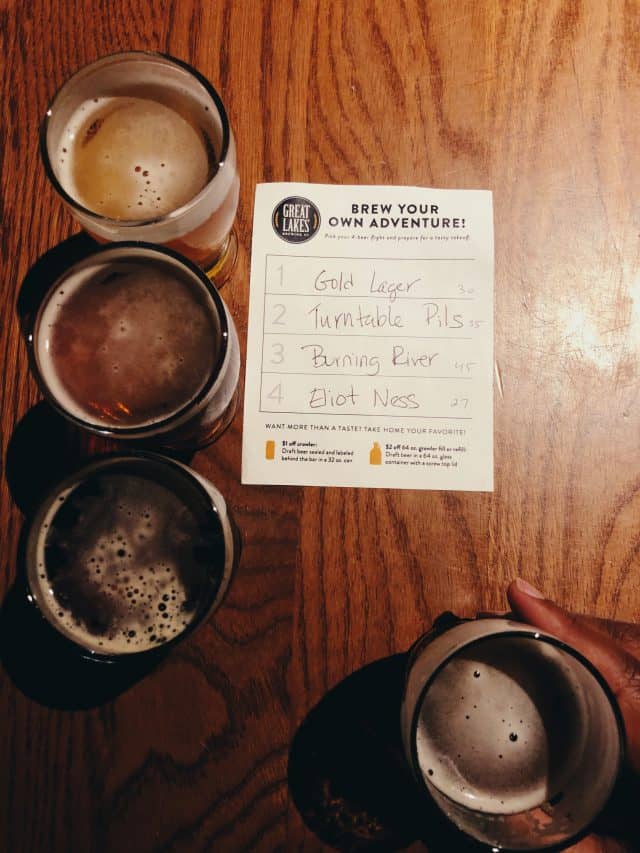 GREAT
LAKES
BREWING CO
BREW YOUR
OWN ADVENTURE!
Pick your 4-beer flight and prepare for a tasty takeoff.
1 Gold Lager 30
2 Turntable Pils 35
3 Burning River 45
4 Eliot Ness 27
WANT MORE THAN A TASTE? TAKE HOME YOUR FAVORITE!
$1 off crowler:
Draft beer sealed and labeled
behind the bar in a 32 oz. can
$2 off 64 oz. growler fill or refill:
Draft beer in a 64 oz. glass
container with a screw top lid